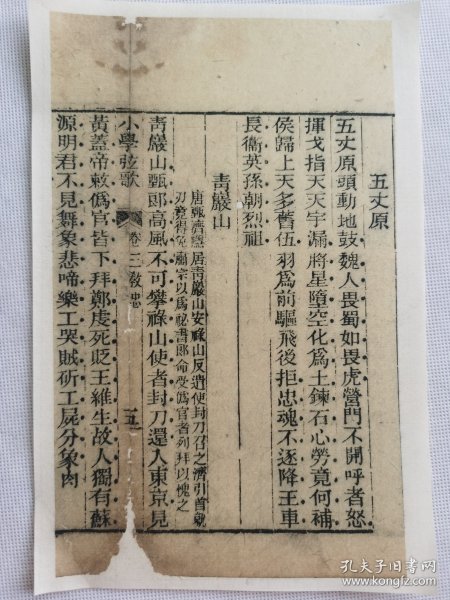 五丈原
五丈原頭動地鼓魏人畏蜀如畏虎營門不開呼者怒
揮戈指天天宇漏將星墮空化爲土鍊石心勞竟何補
侯歸上天多舊伍羽爲前驅飛後拒忠魂不逐降王車
長衞英孫朝烈祖
青巖山
唐甄濟隱居青巖山安祿山反遣使封刀召之濟引首就
刃竟得免肅宗以爲祕書郎命受僞官者列拜以愧之
青巖山甄郎高風不可攀祿山使者封刀還入東京見
小學弦歌 卷三教忠 五
黃蓋帝敕僞官皆下拜鄭虔死貶王維生故人獨有蘇
源明君不見舞象悲啼樂工哭賊斫工屍分象肉
孔夫子旧书网
www.kongfz.com